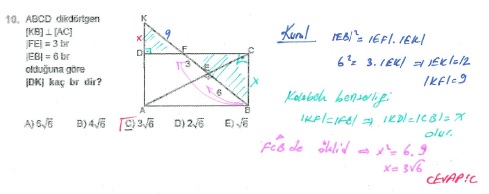 10. ABCD dikdörtgen
[KB] ⊥ [AC]
|FE| = 3 br
|EB| = 6 br
olduğuna göre
|DK| kaç br dir?
K
9
x
D
F
C
3
E
6
x
A
B
A) 6√6 B) 4√6 C) 3√6 D) 2√6 E) √6
Kural |EB|² = |EF|.|EK|
6² = 3.|EK| ⇒ |EK|=12
|KF|=9
Kelebek benzerliği
|KF|=|FB| ⇒ |KD|=|CB|=x
olur.
FCB de öklid ⇒ x² = 6.9
x = 3√6
CEVAP:C